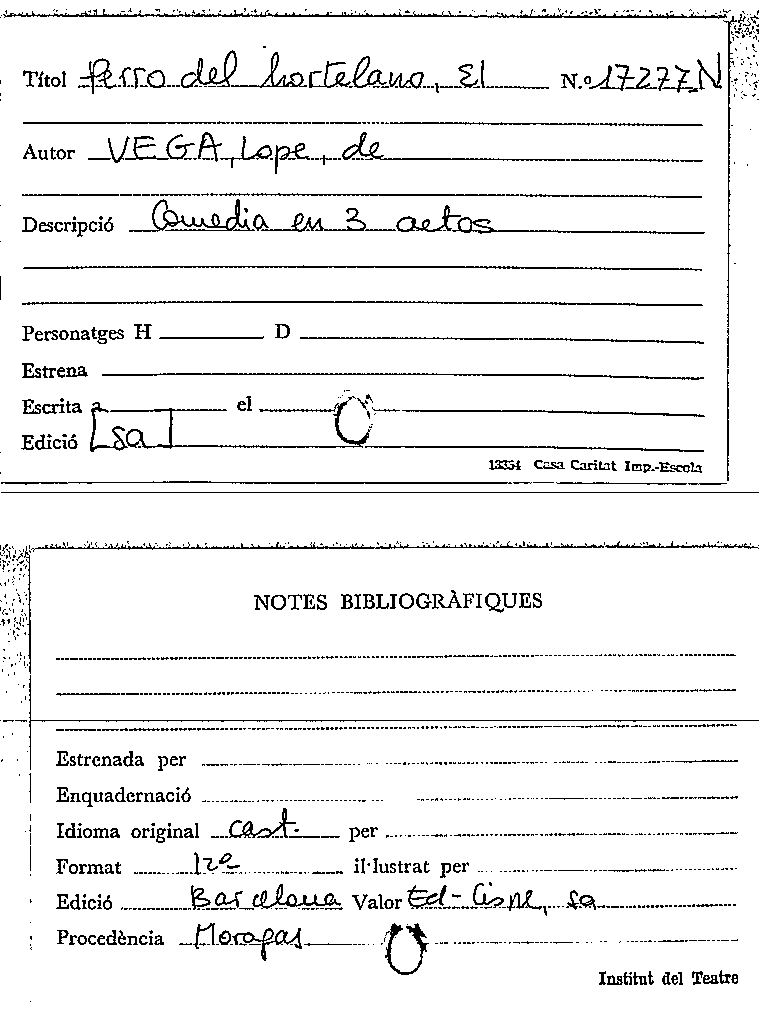 Títol Perro del hortelano, El N.º 17277-N
Autor VEGA, Lope, de
Descripció Comedia en 3 actos
Personatges H D
Estrena
Escrita a el
Edició [sa]
13354 Casa Caritat Imp.-Escola
NOTES BIBLIOGRÀFIQUES
Estrenada per
Enquadernació
Idioma original cast. per
Format 12º il·lustrat per
Edició Barcelona Valor Ed-Cisne, sa
Procedència Moragas
Institut del Teatre